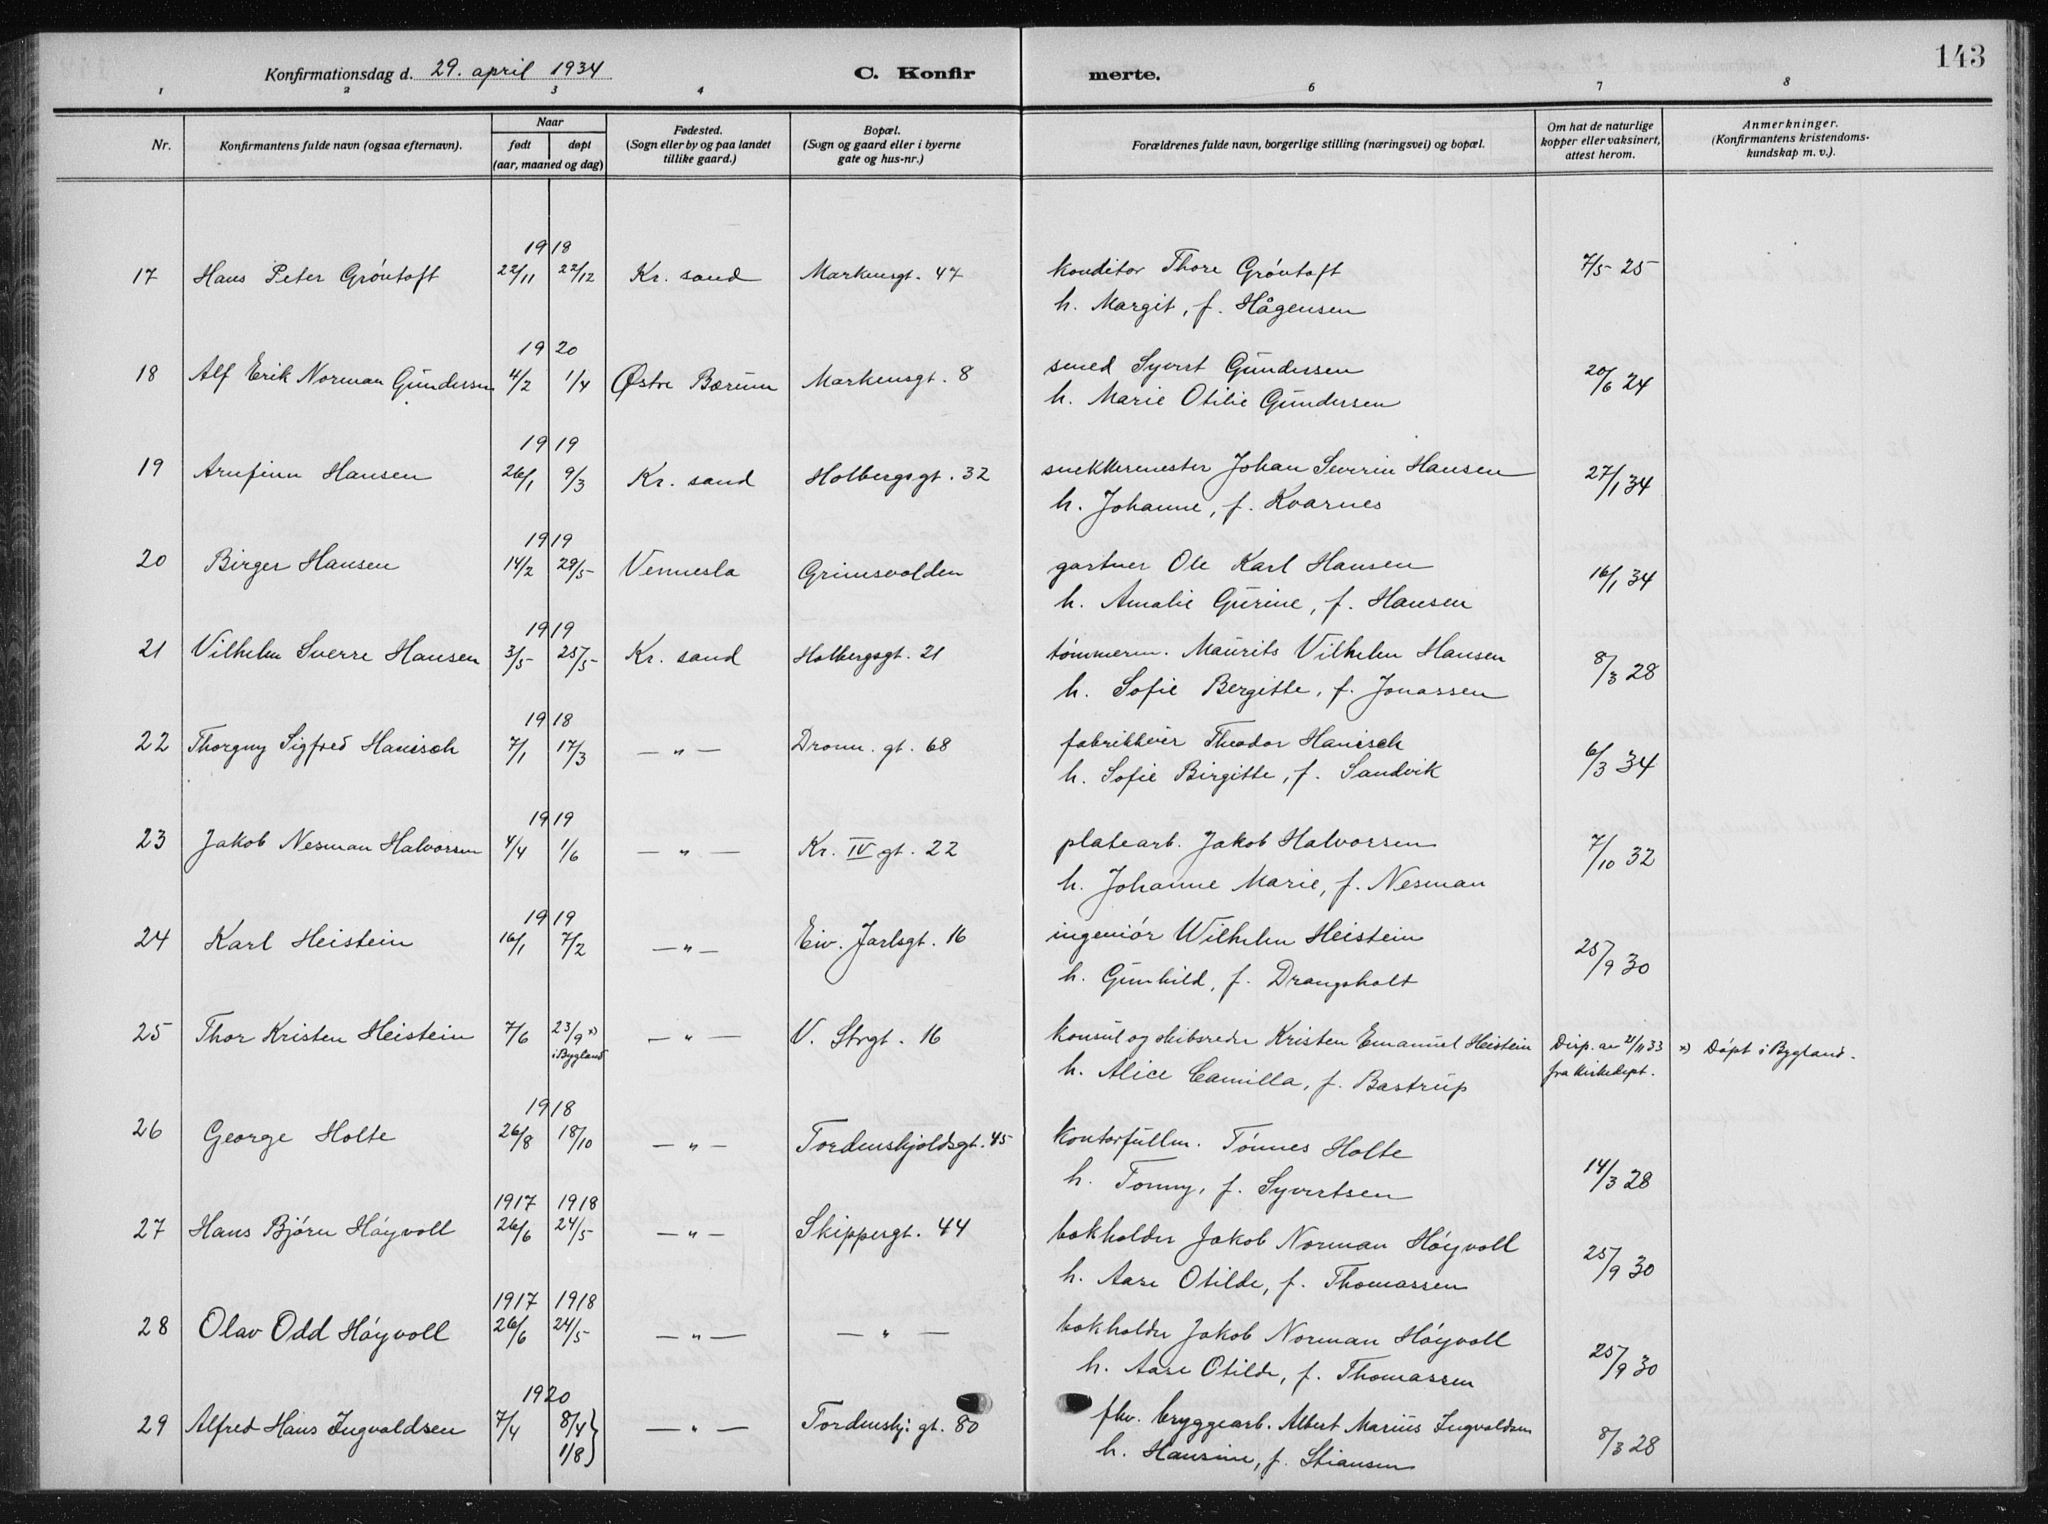 143
Konfirmationsdag d. 29. april 1934
C. Konfir
merte.
1 2 3 4 6 7 8
Nr.
Konfirmantens fulde navn (ogsaa efternavn).
Naar
født døpt
(aar, maaned og dag)
Fødested.
(Sogn eller by og paa landet
tillike gaard.)
Bopæl.
(Sogn og gaard eller i byerne
gate og hus-nr.)
Forældrenes fulde navn, borgerlige stilling (næringsvei) og bopæl.
Om hat de naturlige
kopper eller vaksinert,
attest herom.
Anmerkninger.
(Konfirmantens kristendoms-
kundskap m. v.).
1918
17 Hans Peter Gróntoft 22/11 22/12 Kr. sand Markensgt. 47 konditor Thore Gróntoft 7/5 25
h. Margit, f. Hågensen
1920
18 Alf Erik Norman Gundersen 4/2 1/4 Østre Bærum Markensgt. 8 smed Syvert Gundersen 20/6 24
h. Marie Otilie Gundersen
1919
19 Arnfinn Hansen 26/1 9/3 Kr. sand Holbergsgt. 32 snekkermester Johan Severin Hansen 27/1 34
h. Johanne, f. Kvarnes
1919
20 Birger Hansen 14/2 29/5 Vennesla Grimsvolden gartner Ole Karl Hansen 16/1 34
h. Amalie Gurine, f. Hansen
1919
21 Vilhelm Sverre Hansen 3/5 25/5 Kr. sand Holbergsgt. 21 tómmerm. Maurits Vilhelm Hansen 8/3 28
h. Sofie Bergitte, f. Jonassen
1918
22 Thorguy Sigfred Hanisch 7/1 17/3 — " — Dronn. gt. 68 fabrikkeier Theodor Hanisch 6/3 34
h. Sofie Birgitte, f. Sandvik
1919
23 Jakob Nesman Halvorsen 4/4 1/6 — " — Kr. IV gt. 22 platearb. Jakob Halvorsen 7/10 32
h. Johanne Marie, f. Nesman
1919
24 Karl Heistein 16/1 7/2 — " — Eiv. Jarlsgt. 16 ingeniór Wilhelm Heistein 25/9 30
h. Gunhild, f. Drangsholt
25 Thor Kristen Heistein 7/6 23/9 x) — " — V. Strgt. 16 konsul og skibsreder Kristen Emanuel Heistein Disp. av 21/11 33 x) Dópt i Bygland.
i Bygland h. Alice Camilla, f. Bastrup fra kirkedept.
1918
26 George Holte 26/8 18/10 — " — Tordenskjoldsgt. 45 kontorfullm. Tónnes Holte 14/3 28
h. Tonny, f. Syvertsen
1917 1918
27 Hans Bjórn Hóyvoll 26/6 24/5 — " — Skippergt. 44 bokholder Jakob Norman Hóyvoll 25/9 30
h. Aase Otilde, f. Thomassen
1917 1918
28 Olav Odd Hóyvoll 26/6 24/5 — " — — " — bokholder Jakob Norman Hóyvoll 25/9 30
h. Aase Otilde, f. Thomassen
1920
29 Alfred Hans Ingvaldsen 7/4 8/4 } — " — Tordenskj. gt. 80 fhv. bryggearb. Albert Marius Ingvaldsen 8/3 28
1/8 } h. Hansine, f. Stiansen